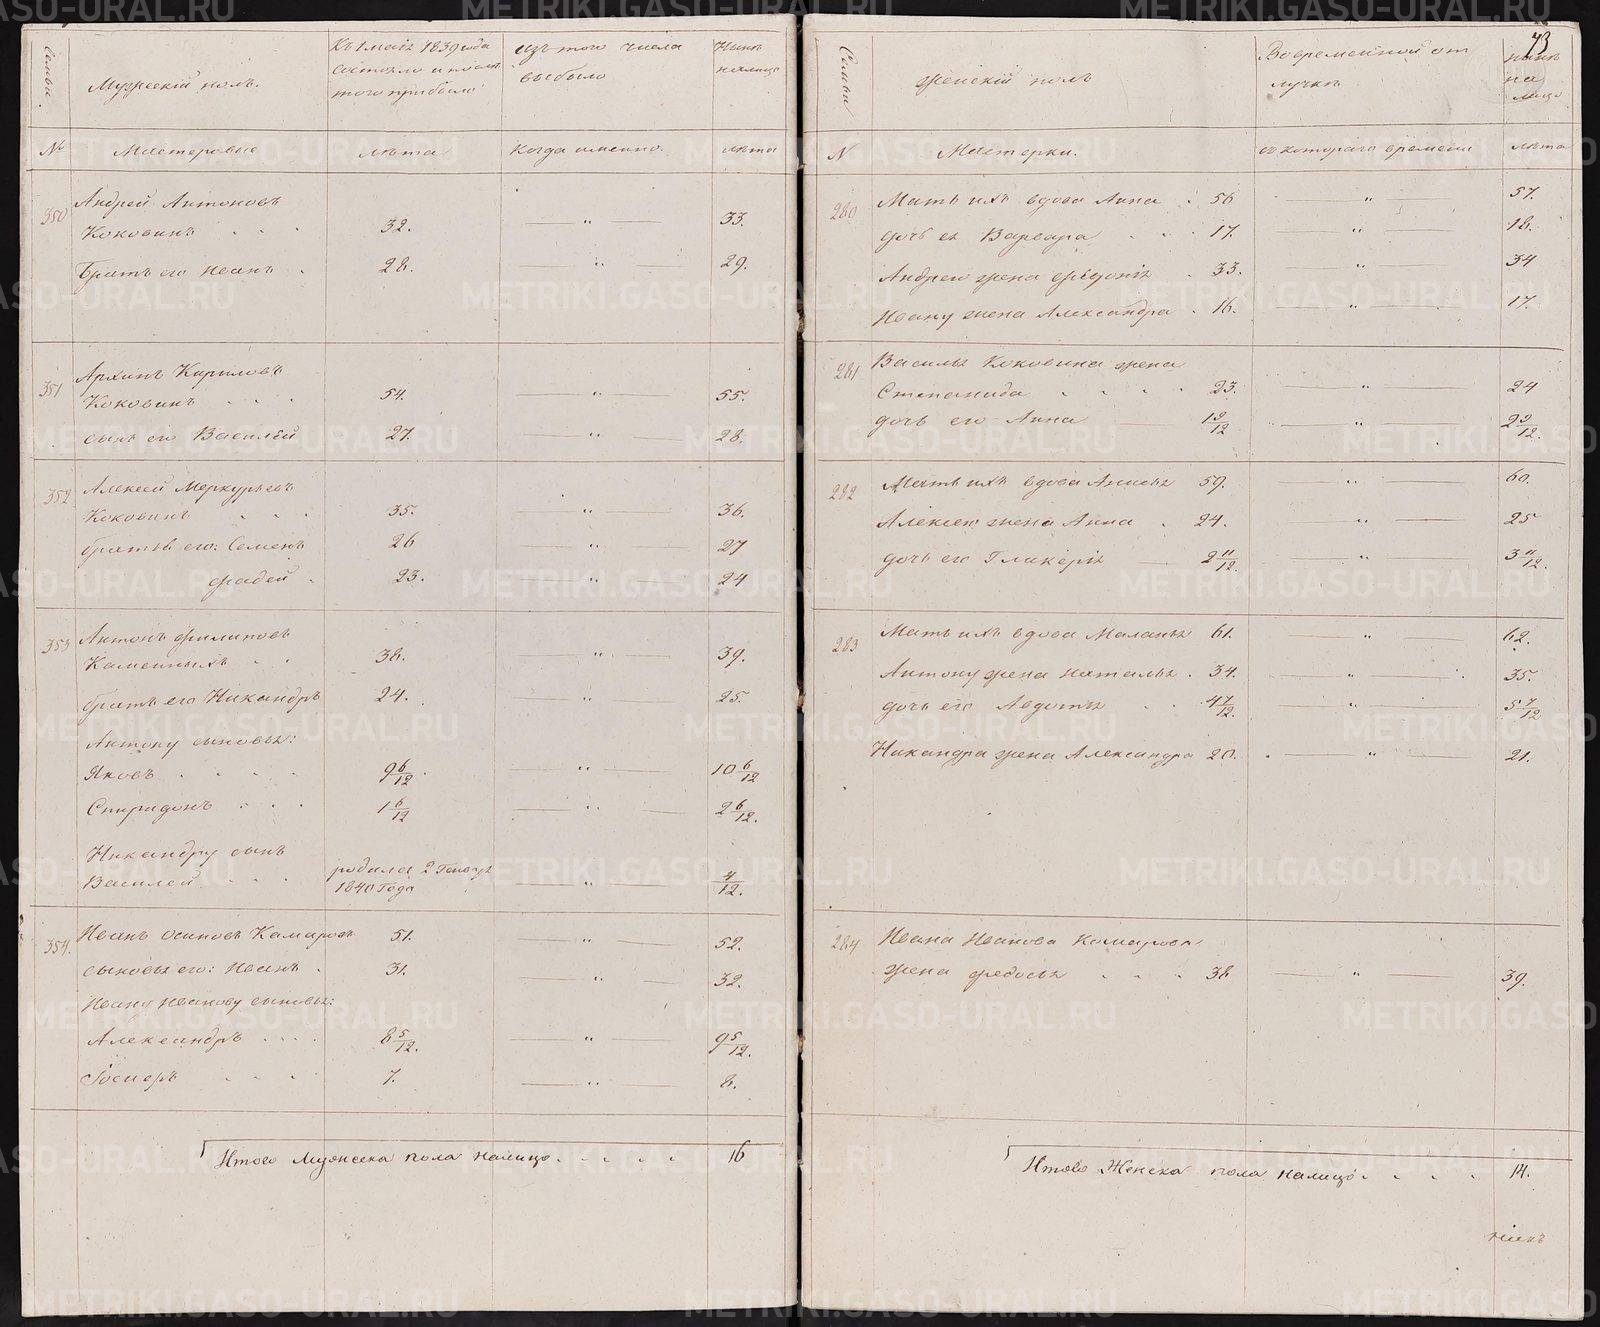 Семьи
Мужескій полъ.
Къ 1 маія 1839 года
состояло и после
того прибыло
Изъ того числа
выбыло
Нынѣ
на лицо
№
Мастеровые
лѣта
Когда именно.
лѣта
350
Андрей Антоновъ
Коковинъ . . . 32. — " — 33.
Братъ его Иванъ . 28. — " — 29.
351
Архипъ Кириловъ
Коковинъ . . . 54. — " — 55.
сынъ его Василей 27. — " — 28.
352
Алексей Меркурьевъ
Коковинъ . . . 35. — " — 36.
братья его: Семенъ 26 — " — 27
Фадей . 23. — " — 24
353
Антонъ Филиповъ
Каменныхъ . . 38. — " — 39.
братъ его Никандръ 24. — " — 25.
Антону сыновья:
Яковъ . . . . 9 6/12. — " — 10 6/12
Спиридонъ . . . 1 6/12 — " — 2 6/12.
Никандру сынъ
Василей . . . родился 2 Генваря
1840 года — " — 4/12.
354.
Иванъ Осиповъ Камаровъ 51. — " — 52.
сыновья его: Иванъ . 31. — " — 32.
Ивану Иванову сыновья:
Александръ . . . . 8 5/12. — " — 9 5/12.
. . . 7. — " — 8.
Итого Мужеска пола налицо . . . . . 16
73
Семьи
Женскій полъ
Во временной от
лучкѣ
нынѣ
на
лицо
N
Мастерки.
съ котораго времени
лѣта
280
Мать ихъ вдова Анна . 56 — " — 57.
дочь ея Варвара . . . 17. — " — 18.
Андрею жена Февдонія . 33. — " — 34
Ивану жена Александра . 16. — " — 17.
281
Василья Коковина жена
Степанида . . . . 23. — " — 24
дочь его Анна 1 9/12 — " — 2 9/12.
282
Мать ихъ вдова Анисья 59. — " — 60.
Алексею жена Анна . 24. — " — 25
дочь его Гликерія 2 11/12. — " — 3 11/12.
283
Мать ихъ вдова Маланья 61. — " — 62.
Антону жена Наталья . 34. — " — 35.
дочь его Авдотья . . . 4 7/12. — " — 5 7/12
Никандра жена Александра 20. — " — 21.
284
Ивана Иванова Комарова
жена Федосья . . . . 38 — " — 39.
Итого Женска пола налицо . . . . . 14.
METRIKI.GASO-URAL.RU